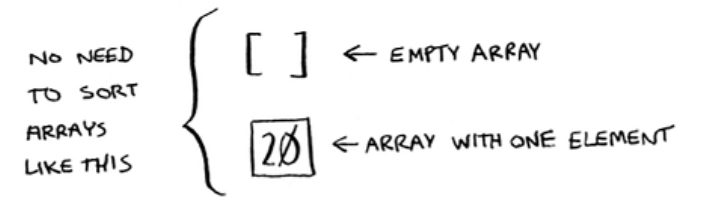 NO NEED
TO SORT
ARRAYS
LIKE THIS
[ ] ← EMPTY ARRAY
20 ← ARRAY WITH ONE ELEMENT